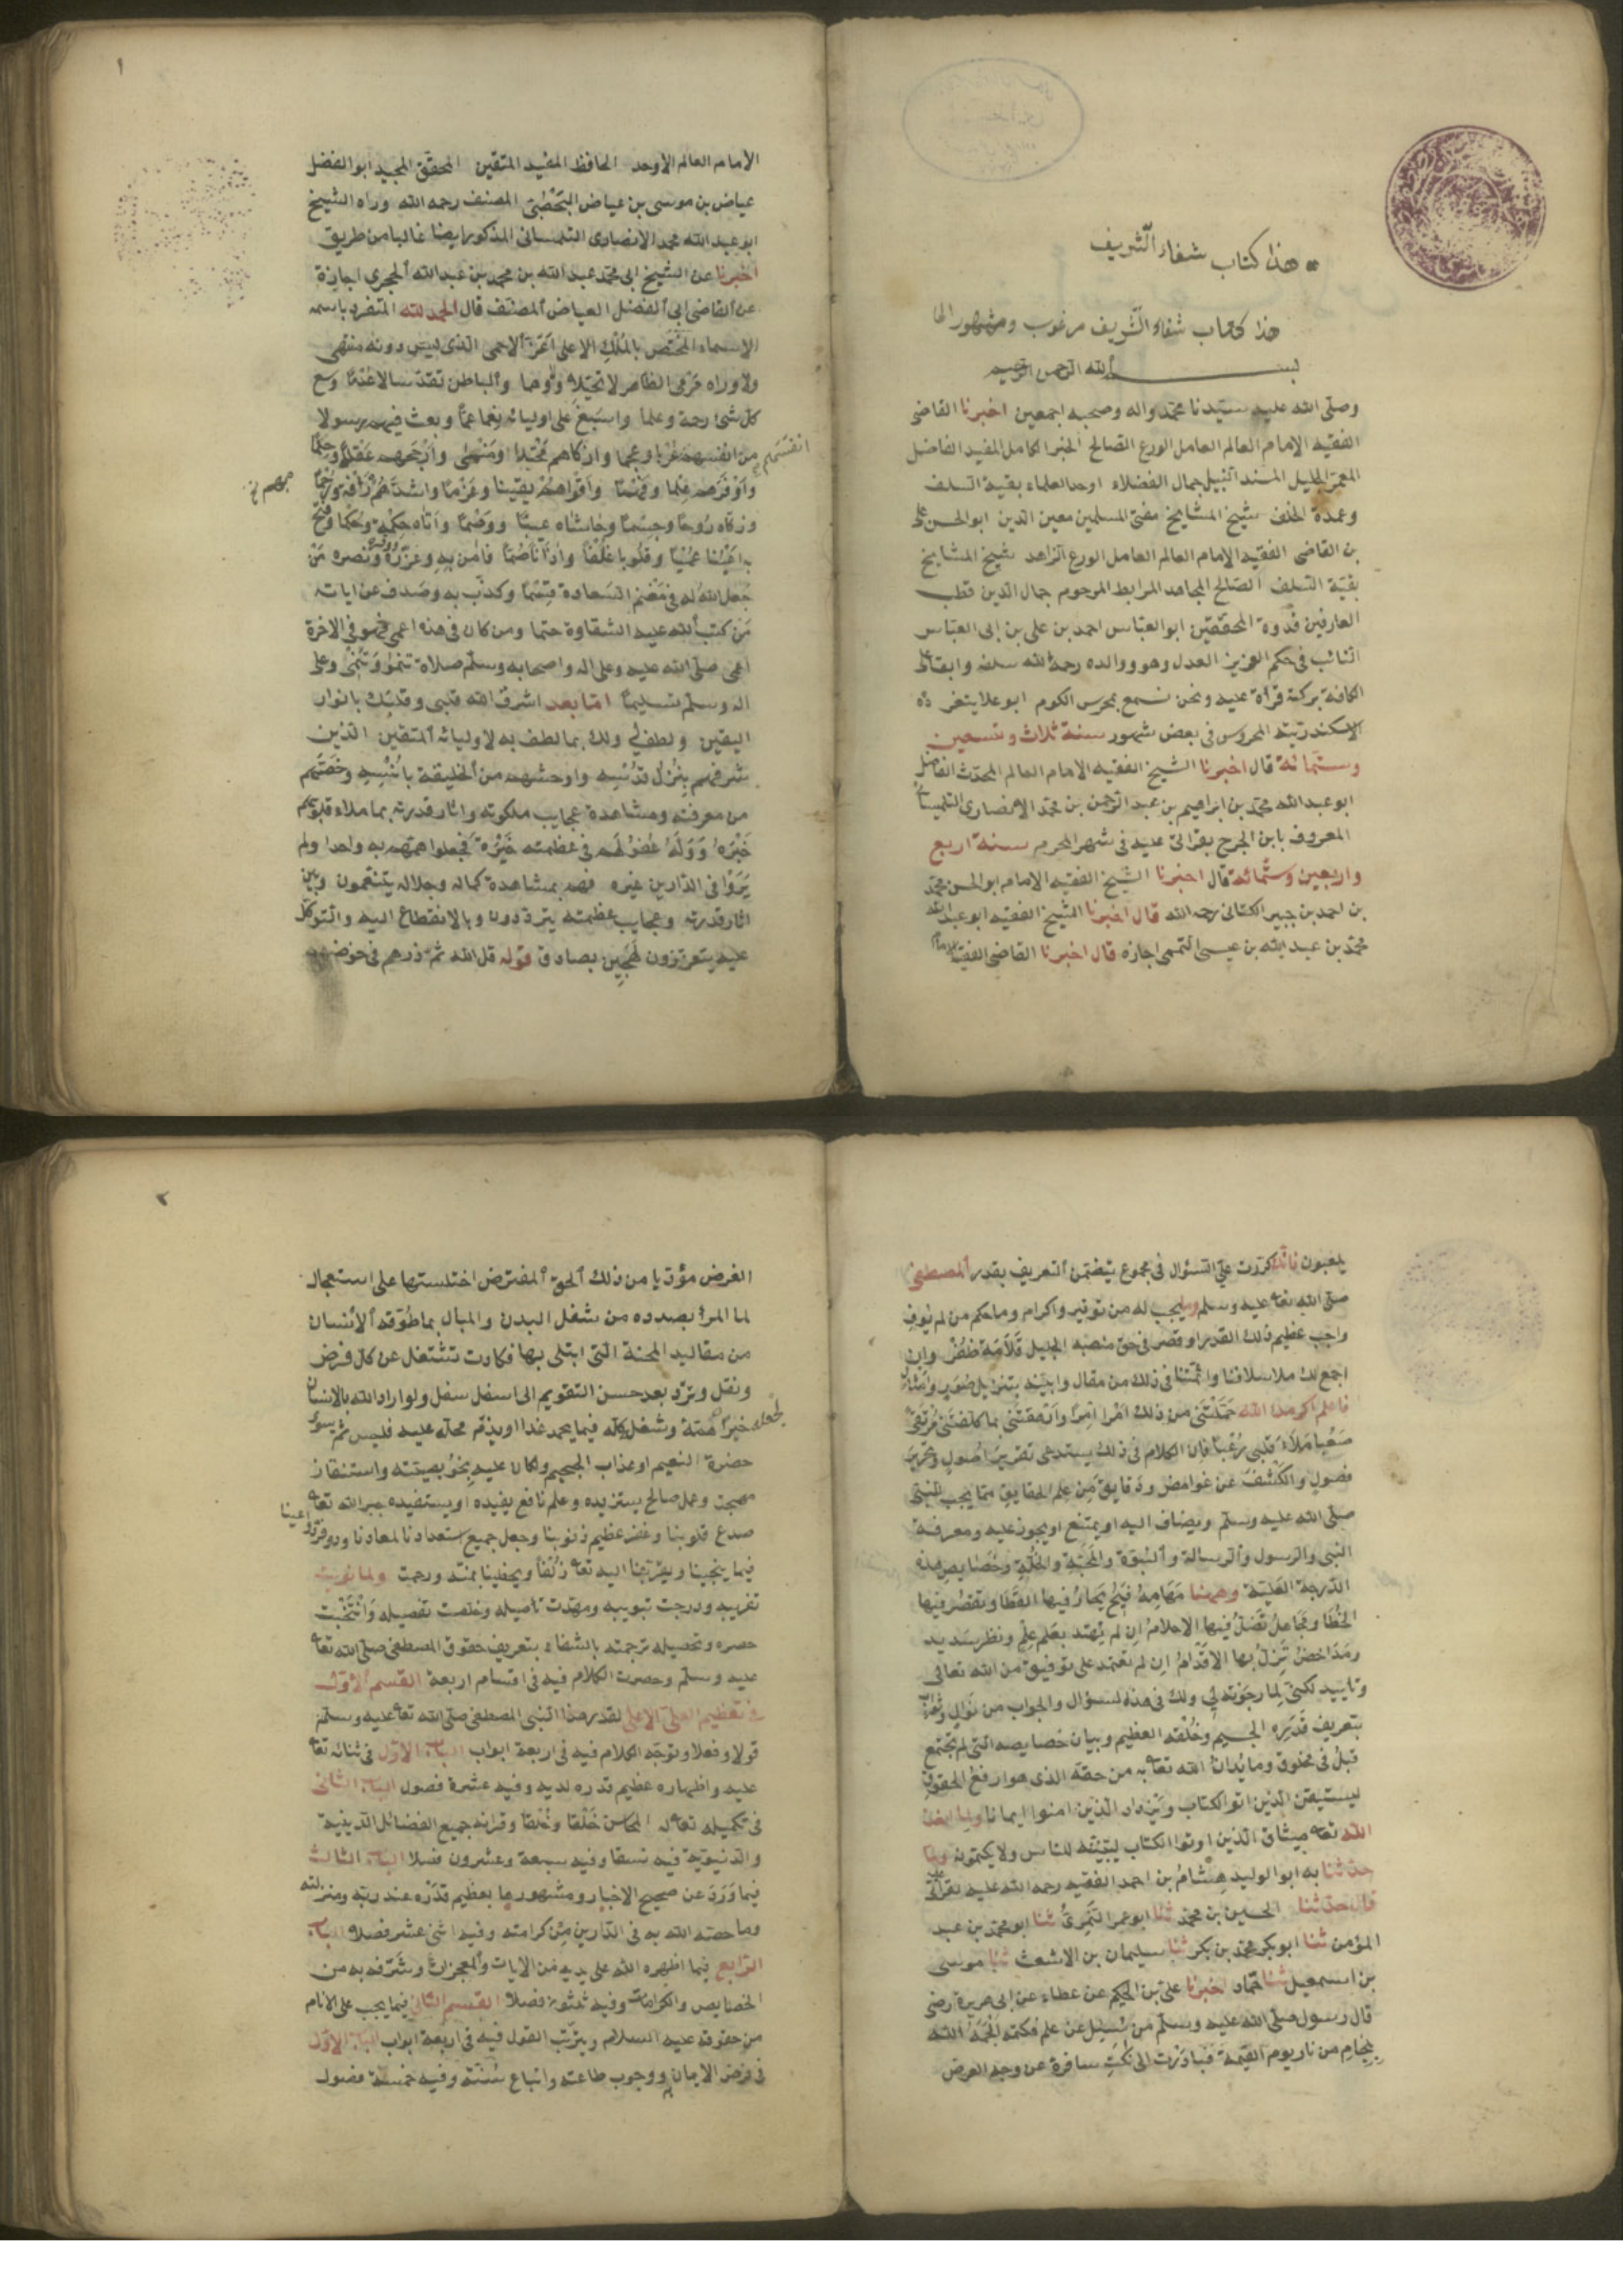 هذا كتاب شفاء الشريف
هذا كتاب شفاء الشريف مرغوب ومشهور
بسم الله الرحمن الرحيم
وصلى الله عليه سيدنا محمد واله وصحبه اجمعين اخبرنا القاضى
الفقيه الامام العالم العامل الورع الصالح الخبر الكامل المفيد الفاضل
المعمر الجليل المسند النبيل جمال الفضلاء اوحد العلماء بقية السلف
وعمدة الخلف شيخ المشايخ مفتى المسلمين معين الدين ابو الحسن على
بن القاضى الفقيه الامام العالم العامل الورع الزاهد شيخ المشايخ
بقية السلف الصالح المجاهد المرابط المرحوم جمال الدين قطب
العارفين قدوة المحققين ابو العباس احمد بن على بن ابى العباس
النائب فى حكم العزيز العدل وهو ووالده رحمة الله سلفه وابقا على
الكافة بركته قراة عليه ونحن نسمع بمحرس الكوم ابو علا بثغر
الاسكندرية المحروس فى بعض شهور سنة ثلاث وتسعين
وستمائة قال اخبرنا الشيخ الفقيه الامام العالم المحدث الفاضل
ابو عبد الله محمد بن ابراهيم بن عبد الرحمن بن محمد الانصارى التلمسانى
المعروف بابن الجرج بقراتى عليه فى شهر المحرم سنة اربع
واربعين وستمائة قال اخبرنا الشيخ الفقيه الامام ابو الحسن محمد
بن احمد بن جبير الكنانى رحمه الله قال اخبرنا الشيخ الفقيه ابو عبد الله
محمد بن عبد الله بن عيسى التممى اجازه قال اخبرنا القاضى الفقيه
١
الامام العالم الاوحد الحافظ المفيد المتقين المحقق المجيد ابو الفضل
عياض بن موسى بن عياض اليحصبى المصنف رحمه الله وراه الشيخ
ابو عبد الله محمد الانصارى التلمسانى المذكور ايضا غالبا من طريق
اخبرنا عن الشيخ ابى محمد عبد الله بن محمد بن عبد الله الحجرى اجازة
عن القاضى ابى الفضل العياض المصنف قال الحمد لله المتفرد باسمه
الاسماء المختص بالملك الاعلى اعز الاحمى الذى ليس دونه منتهى
ولا وراه مرمى الظاهر لا تخيلا ووهما والباطن تقدسا لا عدما وسع
كل شئ رحمة وعلما واسبغ على اوليائه نعما عما وبعث فيهم رسولا
من انفسهم عربا وعجما وازكاهم محتدا ومنمى وارجحهم عقلا وحلما
واوفرهم علما وفهما واقواهم يقينا وعزما واشدهم رافة ورحما
وزكاه روحا وجسما وحاشاه عيبا ووصما واتاه حكمة وحكما وفتح
به اعينا عميا وقلوبا غلفا واذانا صما فامن به وعزره ونصره من
جعل الله له فى مغنم السعادة قسما وكذب به وصدف عن اياته
من كتب الله عليه الشقاوة حتما ومن كان فى هذه اعمى فهو فى الاخرة
اعمى صلى الله عليه وعلى اله واصحابه وسلم صلاة تنمو وتنمى وعلى
اله وسلم تسليما اما بعد اشرق الله قلبى وقلبك بانوار
اليقين ولطف لى ولك بما لطف به لاوليائه المتقين الذين
شرفهم بنزل قدسه واوحشهم من الخليقة بانسه وخصهم
من معرفته ومشاهدة عجايب ملكوته واثار قدرته بما ملاء قلوبهم
حبره ووله عقولهم فى عظمته حيرة فجعلوا همهم به واحدا ولم
يروا فى الدارين غيره فهم بمشاهدة كماله وجلاله يتنعمون وبين
اثار قدرته وعجايب عظمته يترددون وبالانقطاع اليه والتوكل
عليه يتعززون لهجين بصادق قوله قل الله ثم ذرهم فى خوضهم
يلعبون فانك كررت على السؤال فى مجموع يتضمن التعريف بقدر المصطفى
صلى الله تعا عليه وسلم وما يجب له من توقير واكرام وما حكم من لم يوف
واجب عظيم ذلك القدر او قصر فى حق منصبه الجليل قلامة ظفر وان
اجمع لك ما لاسلافنا وائمتنا فى ذلك من مقال وابينه بتنزيل صور وامثال
فاعلم اكرمك الله حملتنى من ذلك امرا امرا وارهقتنى بما كلفتنى
صعبا ملاء قلبى رعبا فان الكلام فى ذلك يستدعى تقرير اصول وتحرير
فصول والكشف عن غوامض ودقايق من علم الحقايق مما يجب للنبى
صلى الله عليه وسلم ويضاف اليه او يمتنع او يجوز عليه ومعرفة
النبى والرسول والرسالة والنبوة والمحبة والخلة وخصايص هذه
الدرجة العلية وههنا مهامه فيح يحار فيها القطا وتقصر فيها
الخطا ومجاهل تضل فيها الاحلام ان لم يهتد بعلم علم ونظر سديد
ومداحض تزل بها الاقدام ان لم تعتمد على توفيق من الله تعالى
وتاييد لكنى لما رجوته لى ولك فى هذه السؤال والجواب من نوال وثواب
بتعريف قدره الجسيم وخلقه العظيم وبيان خصايصه التى لم تجتمع
قبل فى مخلوق وما يدان الله تعا به من حقه الذى هو ارفع الحقوق
ليستيقن الذين اتوا الكتاب ويزداد الذين امنوا ايمانا ولما اخذ
الله تعا ميثاق الذين اوتوا الكتاب ليبيننه للناس ولا يكتمونه ولما
حدثنا به ابو الوليد هشام بن احمد الفقيه رحمه الله عليه بقراتى عليه
قال حدثنا الحسين بن محمد ثنا ابو عمر النمرى ثنا ابو محمد بن عبد
المؤمن ثنا ابو بكر محمد بن بكر ثنا سليمان بن الاشعث ثنا موسى
بن اسمعيل ثنا حماد اخبرنا على بن الحكم عن عطاء عن ابى هريرة رضى
قال رسول صلى الله عليه وسلم من سئل عن علم فكتمه الجمه الله
بلجام من نار يوم القيمة فبادرت الى نكت سافرة عن وجه الغرض
٢
الغرض مؤديا من ذلك الحق المفترض اختلستها على استعجال
لما المرء بصدده من شغل البدن والبال بما طوقه الانسان
من مقاليد المحنة التى ابتلى بها فكادت تشتغل عن كل فرض
ونفل وترد بعد حسن التقويم الى اسفل سفل ولو اراد الله بالانسان
خيرا لجعل همته وشغله كله فيما يحمد غدا او يذم محله عليه فليس ثم سوى
حضرة النعيم او عذاب الجحيم ولكان عليه بخويصته واستنقاذ
مهجته وعمل صالح يستزيده وعلم نافع يفيده او يستفيده جبر الله تعا
صدع قلوبنا وغفر عظيم ذنوبنا وجعل جميع استعدادنا لمعادنا وتوفر دواعينا
فيما ينجينا ويقربنا اليه تعا زلفا ويحظينا بمنه ورحمته ولما نويت
تقريبه ودرجت تبويبه ومهدت تاصيله وخلصت تفصيله وانتحيت
حصره وتحصيله ترجمته بالشفاء بتعريف حقوق المصطفى صلى الله تعا
عليه وسلم وحصرت الكلام فيه فى اقسام اربعة القسم الاول
فى تعظيم العلى الاعلى لقدر هذا النبى المصطفى صلى الله تعا عليه وسلم
قولا وفعلا وتوجه الكلام فيه فى اربعة ابواب الباب الاول فى ثنائه تعا
عليه واظهاره عظيم قدره لديه وفيه عشرة فصول الباب الثانى
فى تكميله تعا له المحاسن خلقا وخلقا وقرانه جميع الفضائل الدينية
والدنيوية فيه نسقا وفيه سبعة وعشرون فصلا الباب الثالث
فيما ورد عن صحيح الاخبار ومشهورها بعظيم قدره عند ربه ومنزلته
وما خصه الله به فى الدارين من كرامته وفيه اثنى عشر فصلا الباب
الرابع فيما اظهره الله على يديه من الايات والمعجزات وشرفه به من
الخصايص والكرامات وفيه ثلثون فصلا القسم الثانى فيما يجب على الانام
من حقوقه عليه السلام ويترتب القول فيه فى اربعة ابواب الباب الاول
فى فرض الايمان به ووجوب طاعته واتباع سنته وفيه خمسة فصول